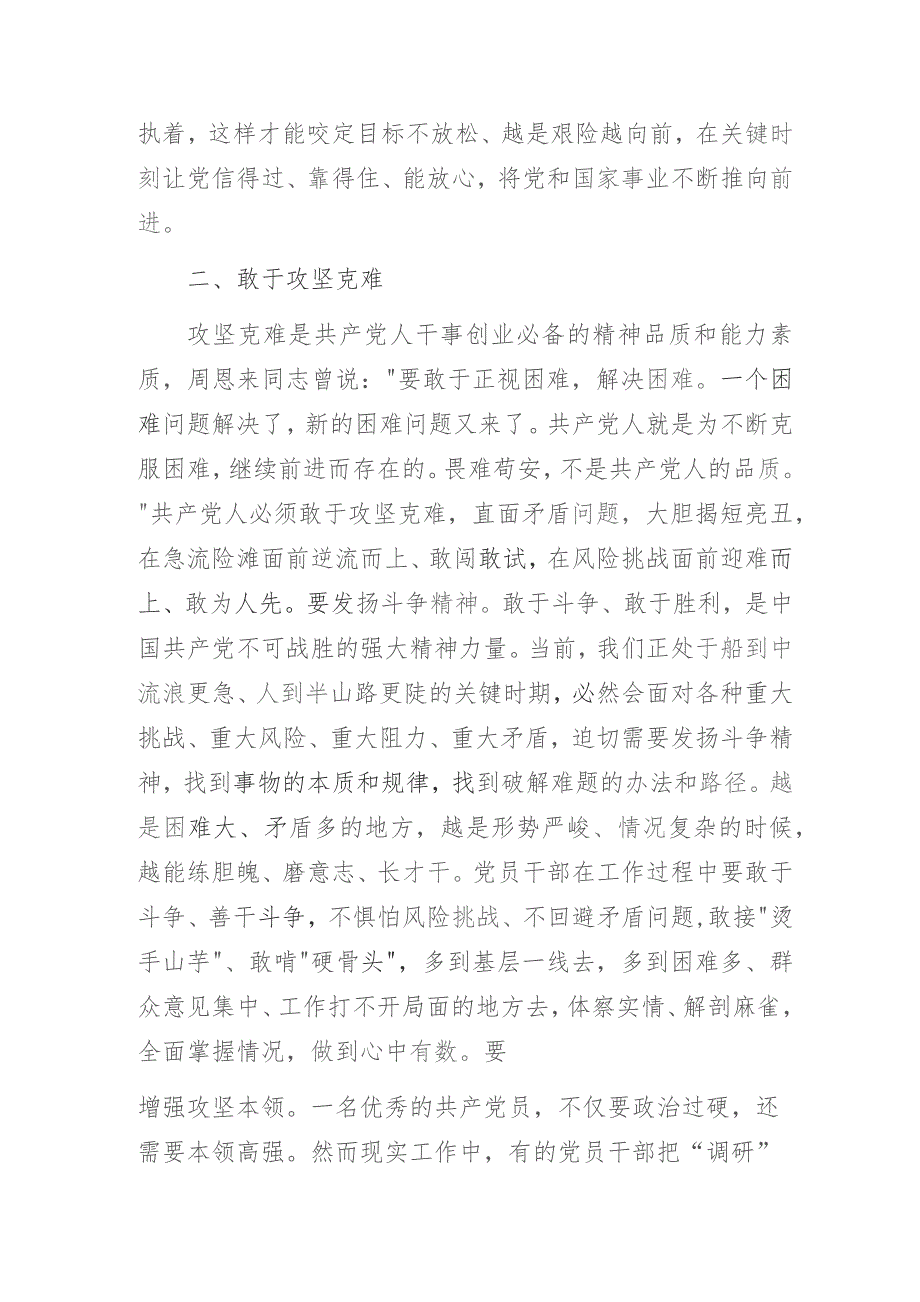 执着，这样才能咬定目标不放松、越是艰险越向前，在关键时
刻让党信得过、靠得住、能放心，将党和国家事业不断推向前
进。
二、敢于攻坚克难
攻坚克难是共产党人干事创业必备的精神品质和能力素
质，周恩来同志曾说："要敢于正视困难，解决困难。一个困
难问题解决了，新的困难问题又来了。共产党人就是为不断克
服困难，继续前进而存在的。畏难苟安，不是共产党人的品质。
"共产党人必须敢于攻坚克难，直面矛盾问题，大胆揭短亮丑，
在急流险滩面前逆流而上、敢闯敢试，在风险挑战面前迎难而
上、敢为人先。要发扬斗争精神。敢于斗争、敢于胜利，是中
国共产党不可战胜的强大精神力量。当前，我们正处于船到中
流浪更急、人到半山路更陡的关键时期，必然会面对各种重大
挑战、重大风险、重大阻力、重大矛盾，迫切需要发扬斗争精
神，找到事物的本质和规律，找到破解难题的办法和路径。越
是困难大、矛盾多的地方，越是形势严峻、情况复杂的时候，
越能练胆魄、磨意志、长才干。党员干部在工作过程中要敢于
斗争、善干斗争，不惧怕风险挑战、不回避矛盾问题,敢接"烫
手山芋"、敢啃"硬骨头"，多到基层一线去，多到困难多、群
众意见集中、工作打不开局面的地方去，体察实情、解剖麻雀，
全面掌握情况，做到心中有数。要
增强攻坚本领。一名优秀的共产党员，不仅要政治过硬，还
需要本领高强。然而现实工作中，有的党员干部把“调研”